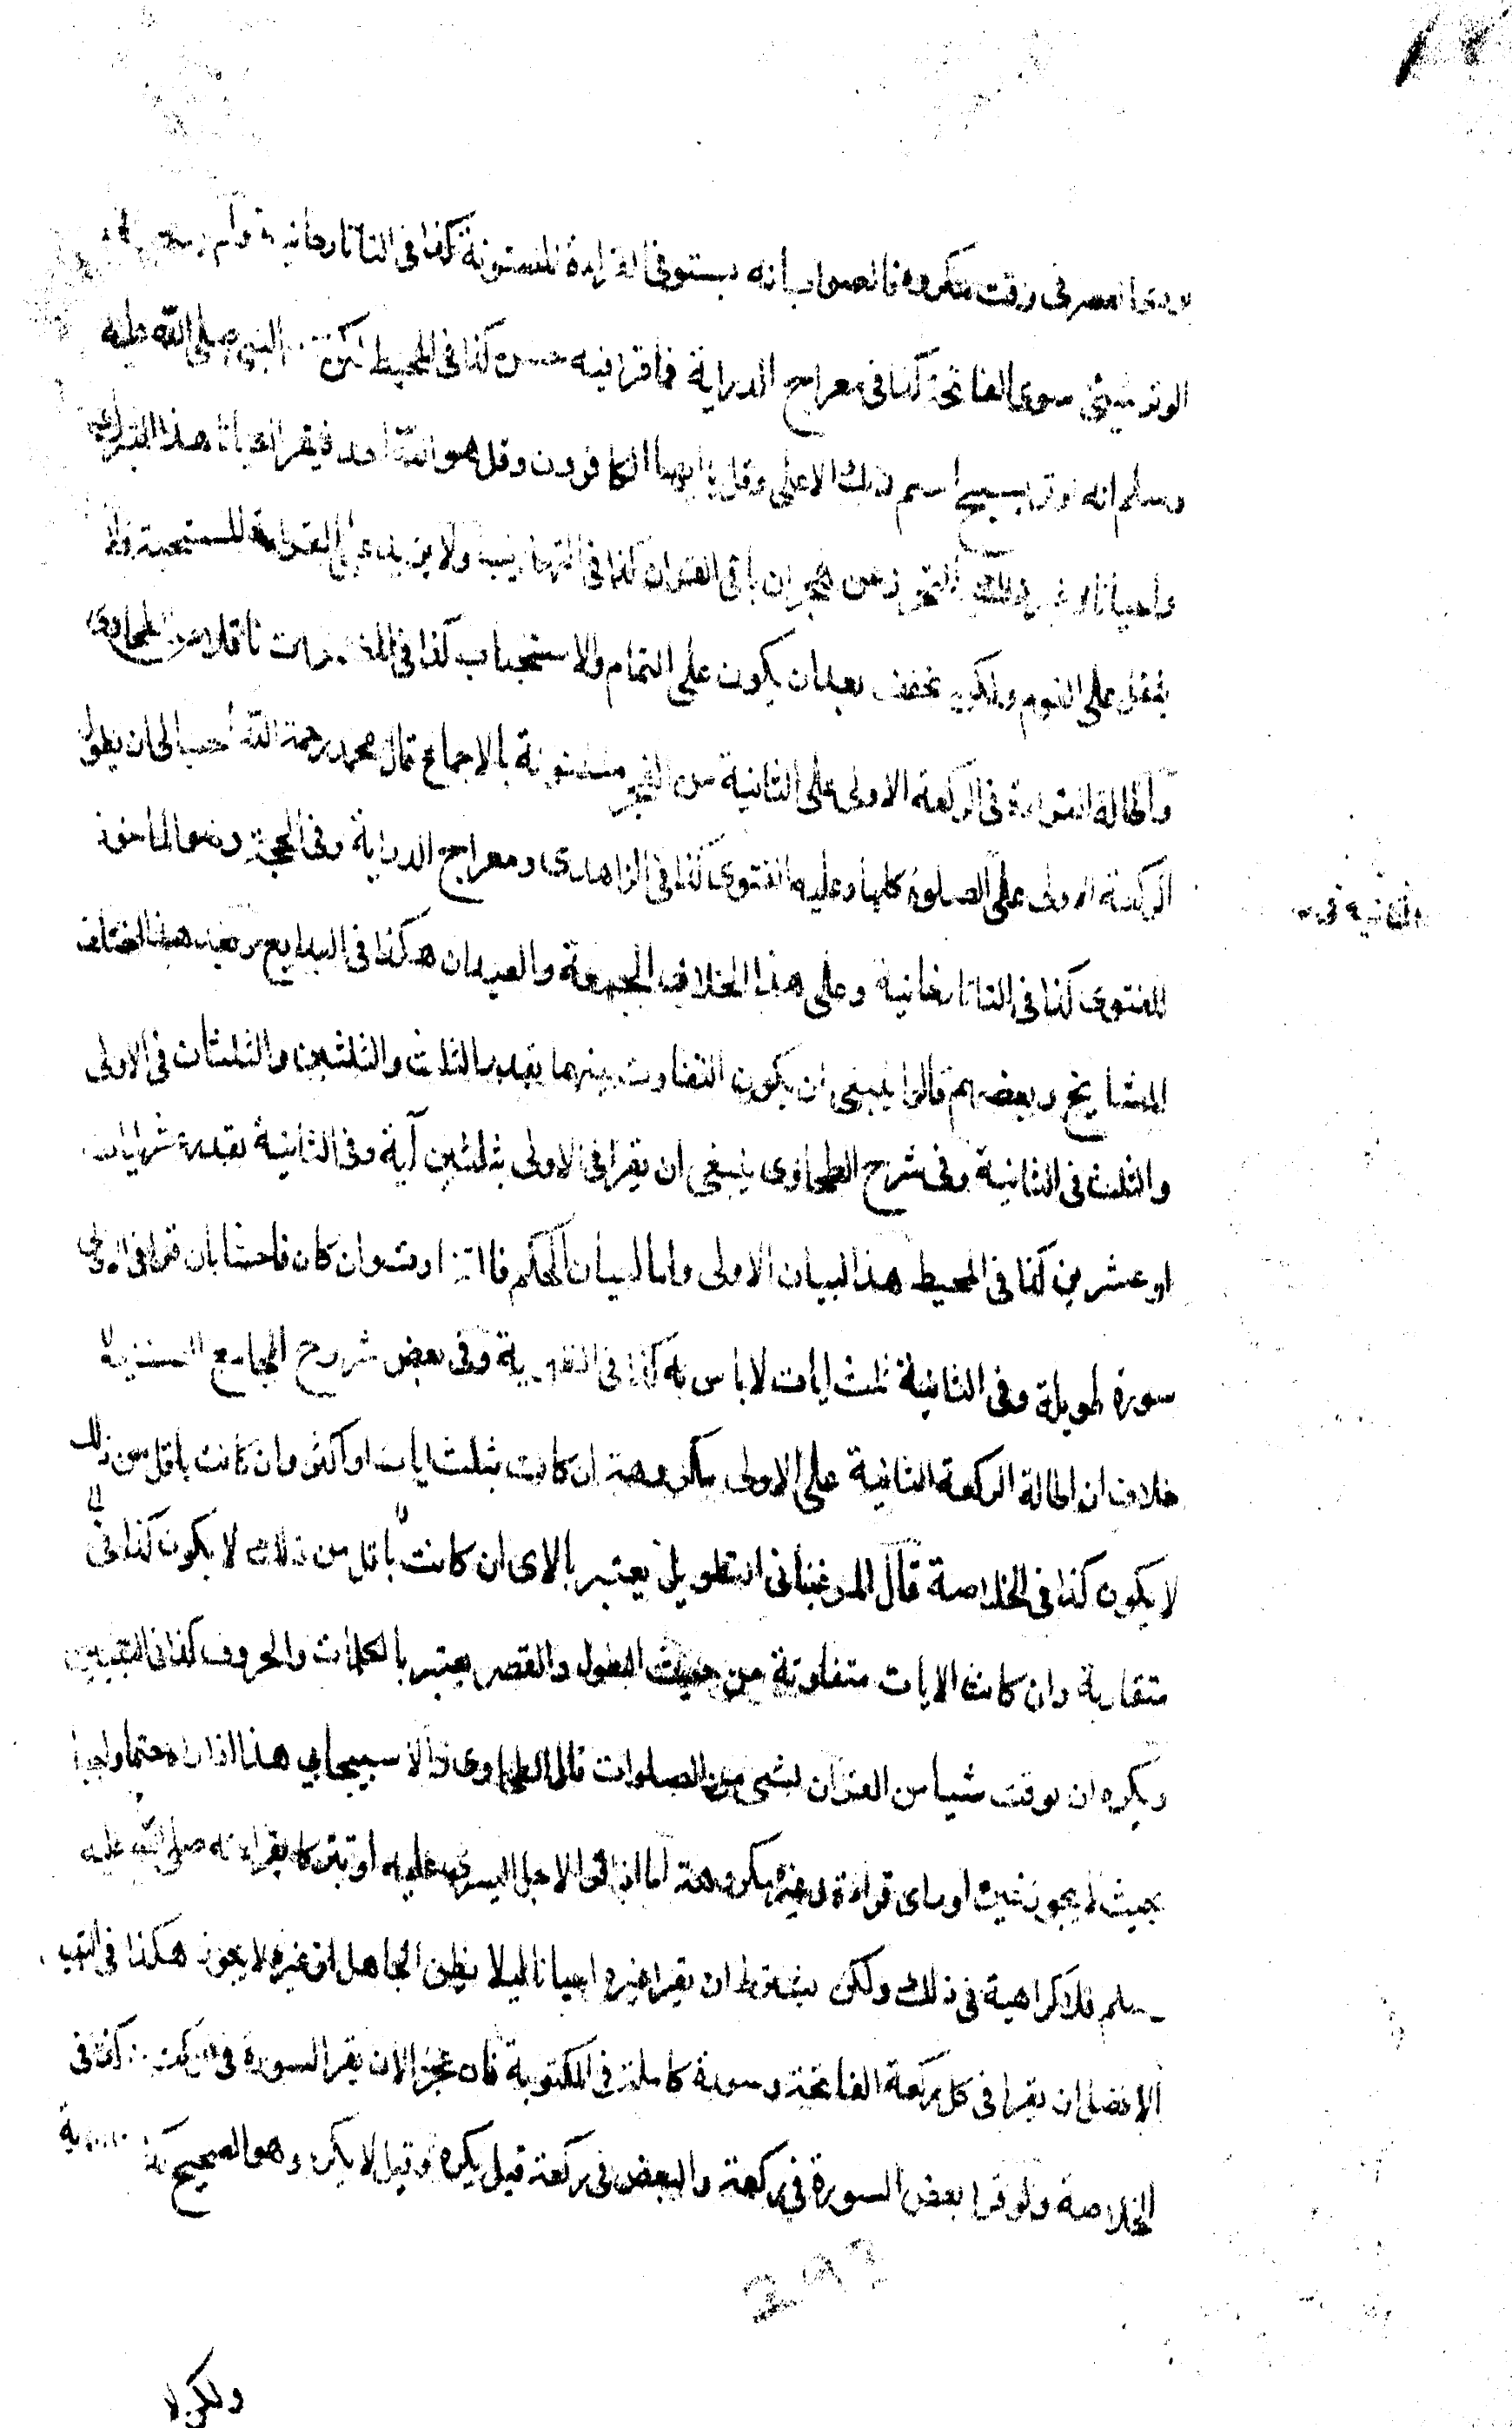 يودى العصر فى وقت مكروه فالصواب انه يستوفى القراءة المسنونة كذا فى التاتارخانية
الوتر شيئ سوى الفاتحة كذا فى معراج الدراية فما قرا فيه حسن كذا فى المحيط لكن النبي صلى الله عليه
وسلم انه اوتر بسبح اسم ربك الاعلى وقل يا ايها الكافرون وقل هو الله احد فيقرا احيانا هذا للتبرك
واحيانا غير ذلك للتحرز عن هجران باقى القران كذا فى التهذيب ولا يزيد على القراءة المستحبة ولا
يثقل على القوم ولكن يخفف بعد ان يكون على التمام والاستحباب كذا فى المضمرات ناقلا عن الطحاوى
واطالة القراءة فى الركعة الاولى على الثانية من الفجر مسنونة بالاجماع قال محمد رحمة الله احب الى ان يطول
الركعة الاولى على الصلوة كلها وعليه الفتوى كذا فى الزاهدى ومعراج الدراية وفى الحجة وهو الماخوذ
والثانية فى
للفتوى كذا فى التاتارخانية وعلى هذا الخلاف الجمعة والعيدان هكذا فى البدايع وبعد هذا اختلف
المشايخ وبعضهم قالوا ينبغى ان يكون التفاوت بينهما بقدر الثلث والثلثين والثلثان فى الاولى
والثلث فى الثانية وفى شرح الطحاوى ينبغى ان يقرا فى الاولى بثلثين آية وفى الثانية بقدر عشر ايات
او عشرين كذا فى المحيط هذا البيان الاولى واما البيان الحكم فالتفاوت وان كان فاحشا بان قرا فى الاولى
سورة طويلة وفى الثانية ثلث ايات لا باس به كذا فى الظهيرية وفى بعض شروح الجامع الصغير لا
خلاف ان اطالة الركعة الثانية على الاولى مكروهة ان كانت بثلث ايات او اكثر وان كانت باقل من ذلك
لا يكون كذا فى الخلاصة قال المرغينانى التطويل يعتبر بالاى ان كانت باقل من ذلك لا يكون كذا فى
متقاربة وان كانت الايات متفاوتة من حيث الطول والقصر يعتبر بالكلمات والحروف كذا فى التبيين
ويكره ان يوقت شيا من القران لشئ من الصلوات قال الطحاوى والاسبيجابي هذا اذا راه حتما واجبا
بحيث لا يجوز غيره او راى قراءة غيره مكروهة اما اذا قرا لاجل اليسر عليه او تبركا بقراءته صلى الله عليه
وسلم فلا كراهية فى ذلك ولكن يشترط ان يقرا غيره احيانا ليلا يظن الجاهل ان غيره لا يجوز هكذا فى التبيين
الافضل ان يقرا فى كل ركعة الفاتحة وسورة كاملة فى المكتوبة فان عجز الان يقرا السورة فى الركعتين كذا فى
الخلاصة ولو قرا بعض السورة فى ركعة والبعض فى ركعة قيل يكره وقيل لا يكره وهو الصحيح
ولكن لا